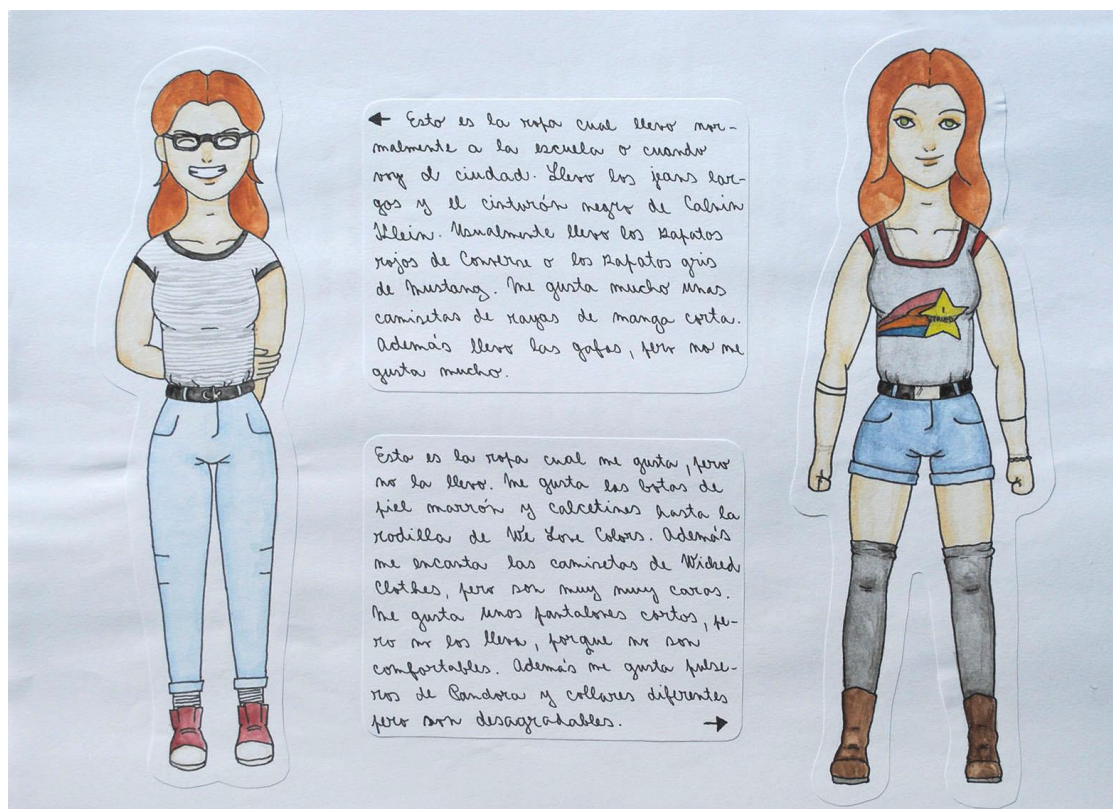 ← Esto es la ropa cual llevo nor-
malmente a la escuela o cuando
voy al ciudad. Llevo los jeans lar-
gos y el cinturón negro de Calvin
Klein. Usualmente llevo los zapatos
rojos de Converse o los zapatos gris
de Mustang. Me gusta mucho unas
camisetas de rayas de manga corta.
Además llevo las gafas, pero no me
gusta mucho.
Esta es la ropa cual me gusta, pero
no la llevo. Me gusta las botas de
piel marrón y calcetines hasta la
rodilla de We Love Colors. Además
me encanta las camisetas de Wicked
Clothes, pero son muy muy caras.
Me gusta unos pantalones cortos, pe-
ro no los llevo, porque no son
comfortables. Además me gusta pulse-
ras de Pandora y collares diferentes
pero son desagradables. →
I
TRIED!